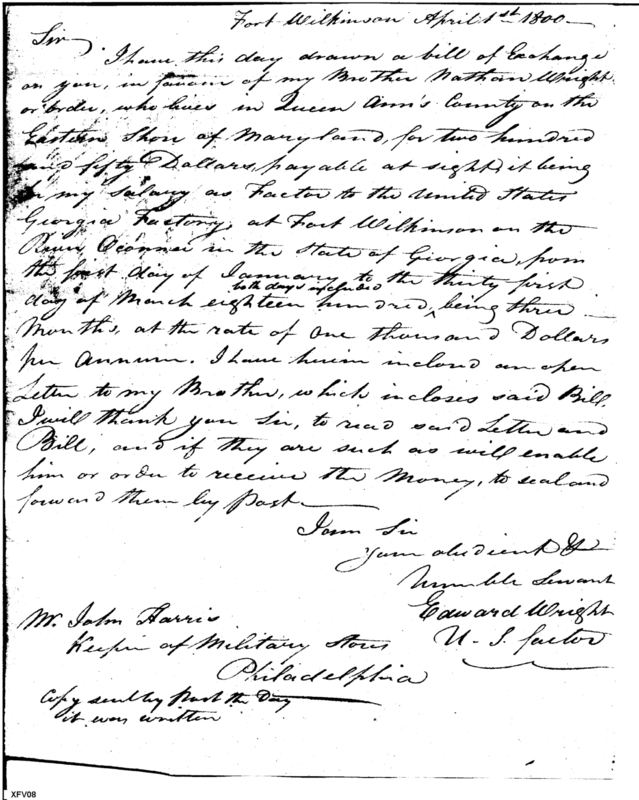 Fort Wilkinson April 1st 1800
Sir
I have this day drawn a bill of Exchange
on you, in favour of my Brother Nathan Wright
or order, who lives in Queen Ann's County on the
Eastern Shore of Maryland, for two hundred
and fifty Dollars, payable at sight, it being
my Salary as Factor to the United States
Georgia Factory, at Fort Wilkinson on the
River Oconnee in the State of Georgia, from
the first day of January to the thirty first
both days included
day of March eighteen hundred, being three
Months, at the rate of One thousand Dollars
per Annum. I have herein inclosd an open
Letter to my Brother, which incloses said Bill,
I will thank you Sir, to read said Letter and
Bill, and if they are such as will enable
him or order to receive the Money, to seal and
forward them by Post
I am Sir
Your obedient &
Humble Servant
Edward Wright
U. S. factor
Mr. John Harris
Keeper of Military Stores
Philadelphia
Copy sent by Post the Day
it was written
XFV08